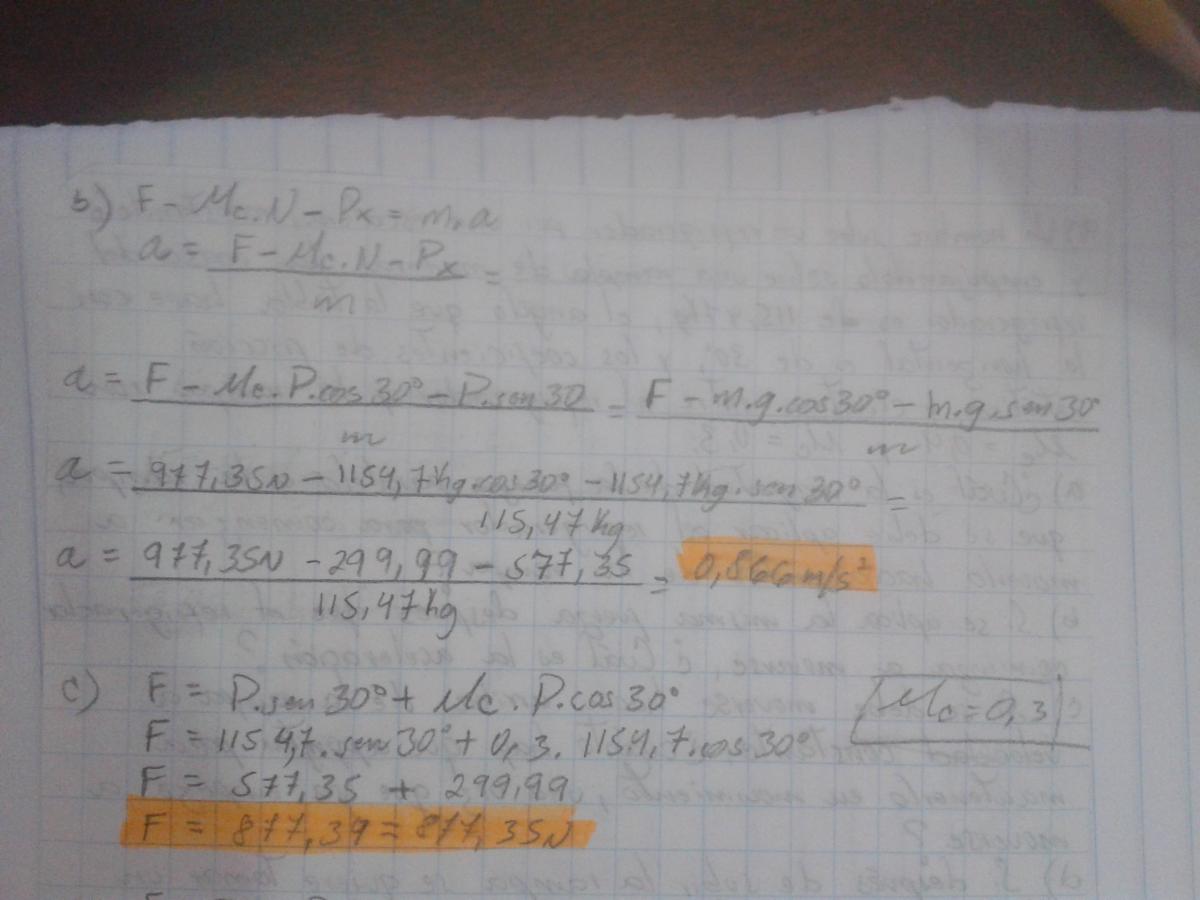 b) F - Mc.N - Px = m.a
a = F - Mc.N - Px =
m
a = F - Mc.P.cos 30° - P.sen 30 = F - m.g.cos30° - m.g.sen 30°
m m
a = 977,35N - 1154,7Kg.cos30° - 1154,7Kg.sen 30° =
115,47Kg
a = 977,35N - 299,99 - 577,35 = 0,866 m/s²
115,47kg
c) F = P.sen 30° + Mc.P.cos30°
Mc = 0,3
F = 1154,7.sen 30° + 0,3. 1154,7.cos30°
F = 577,35 + 299,99
F = 877,39 = 877,35N